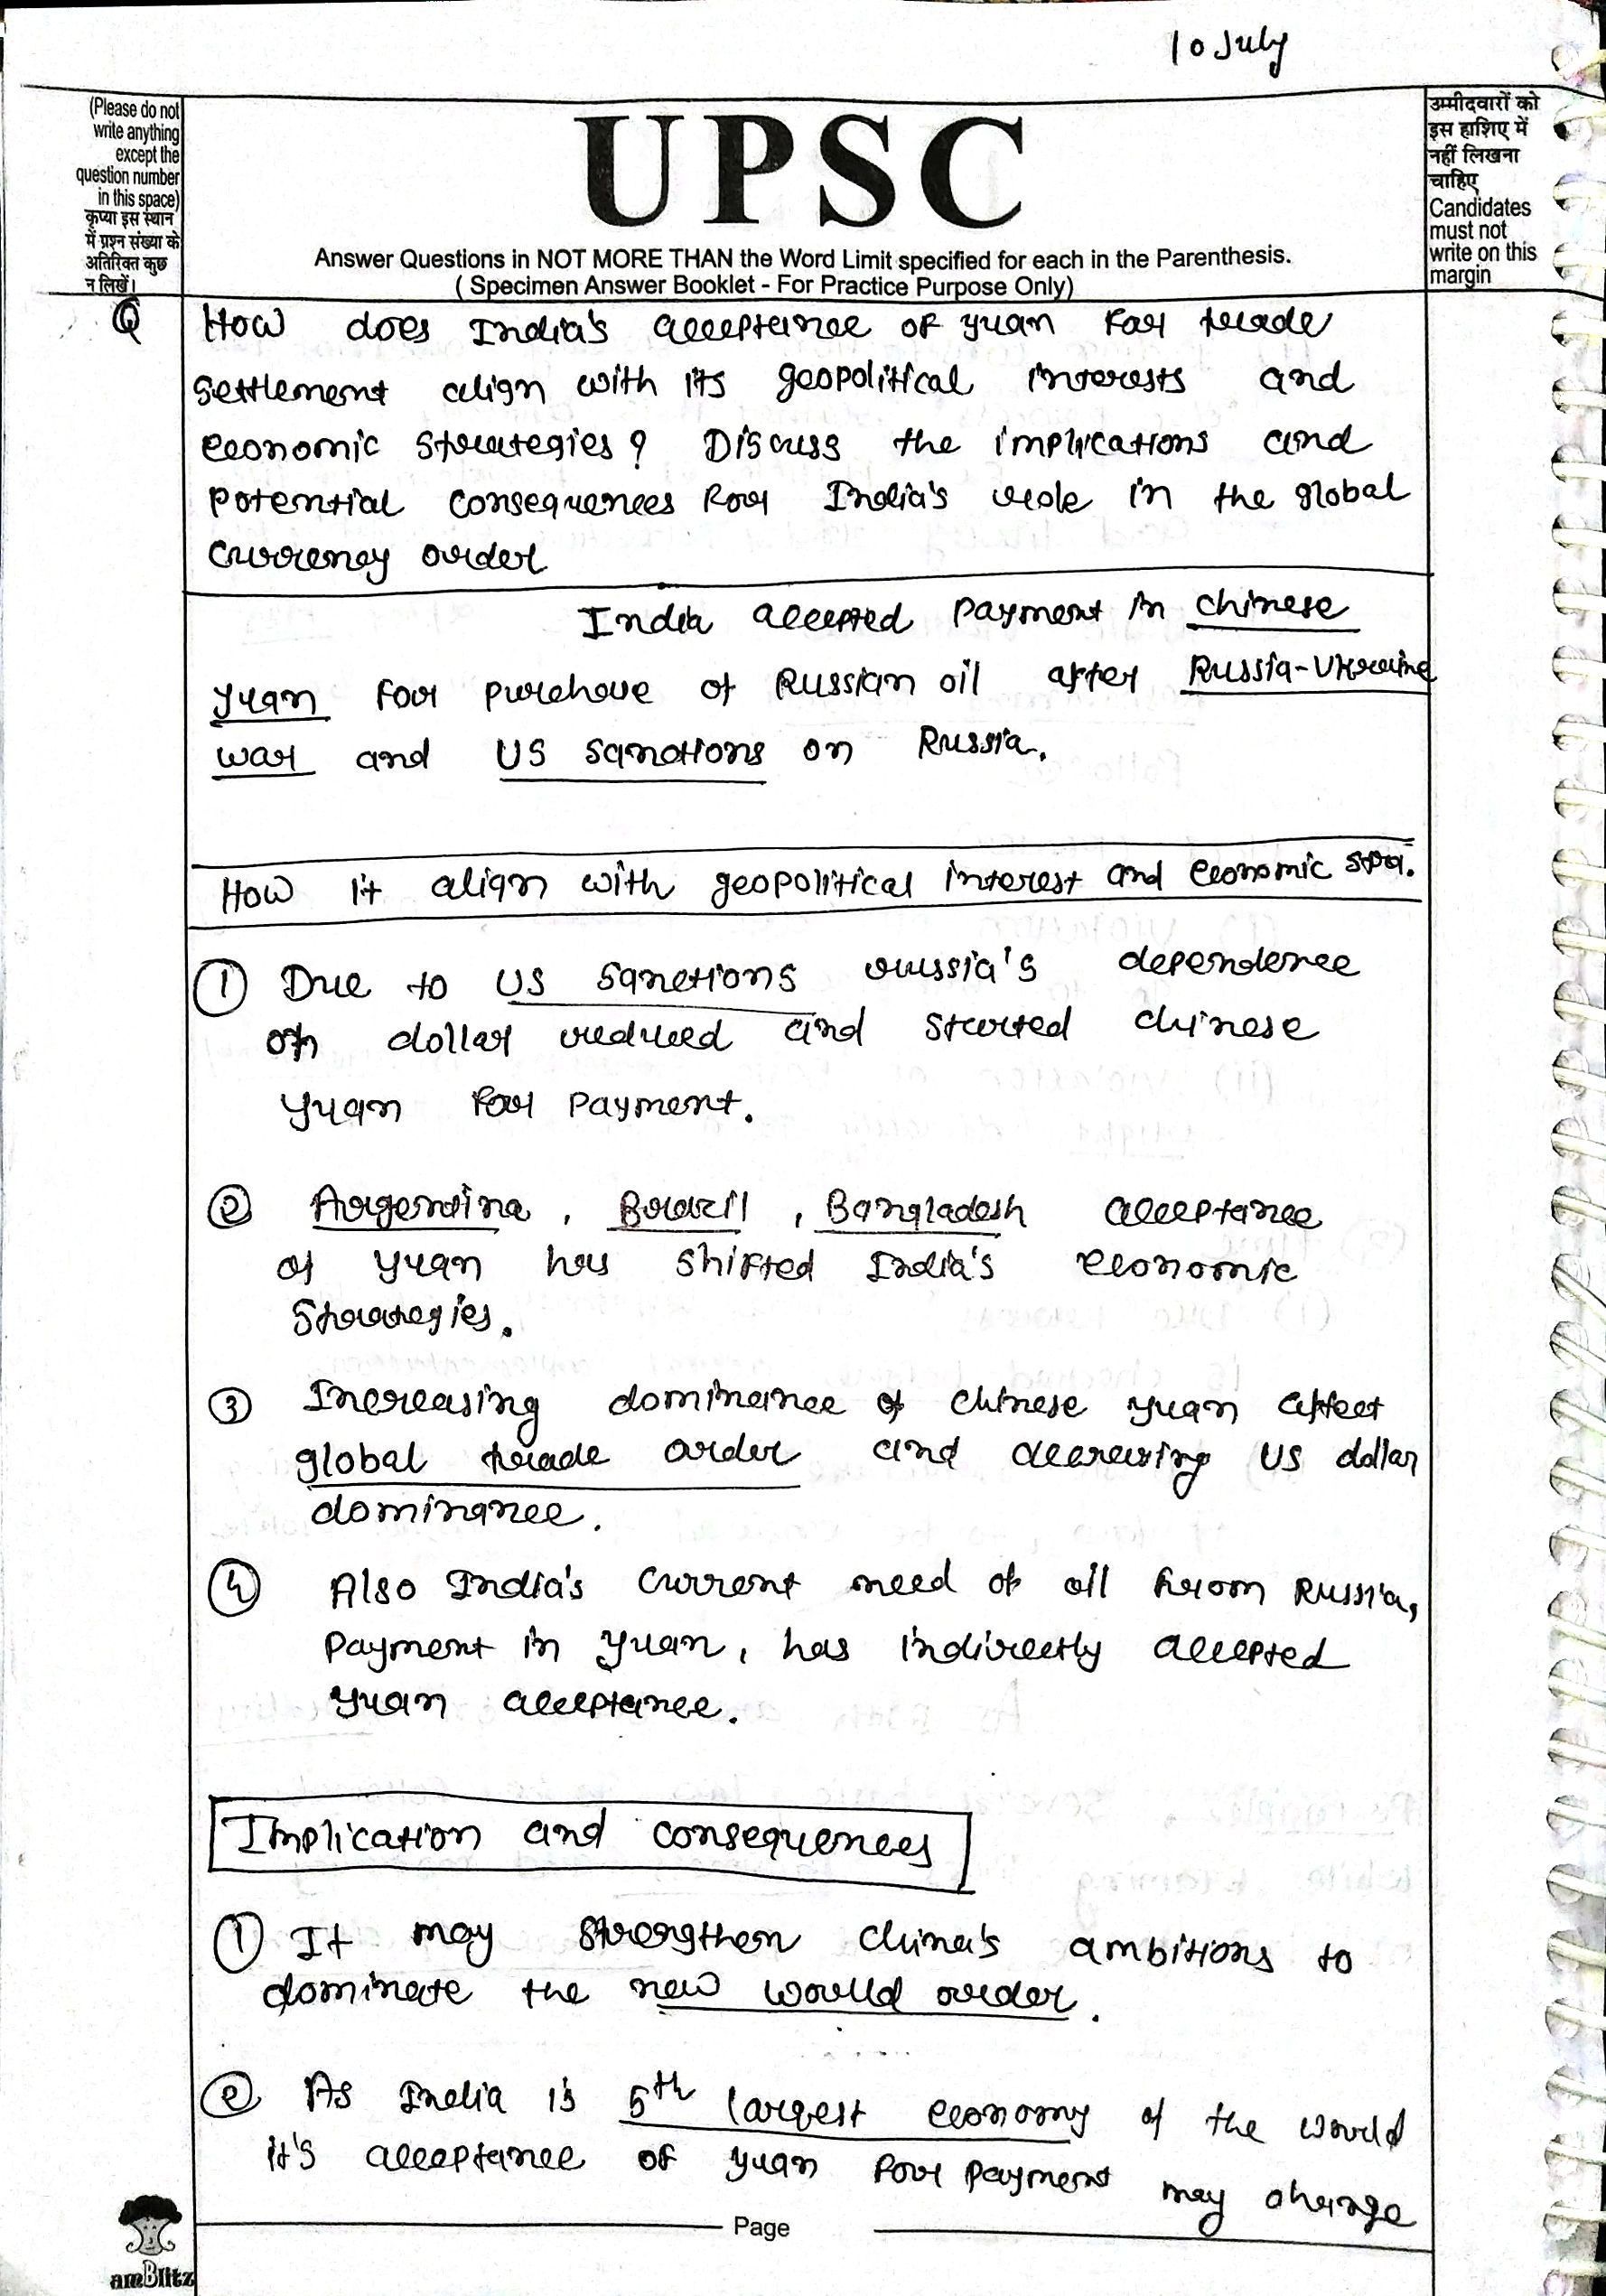 10 July
(Please do not
write anything
except the
question number
in this space)
कृप्या इस स्थान
में प्रश्न संख्या के
अतिरिक्त कुछ
न लिखें।
UPSC
Answer Questions in NOT MORE THAN the Word Limit specified for each in the Parenthesis.
( Specimen Answer Booklet - For Practice Purpose Only)
उम्मीदवारों को
इस हाशिए में
नहीं लिखना
चाहिए
Candidates
must not
write on this
margin
Q How does India's acceptance of yuan for trade
settlement align with its geopolitical interests and
economic strategies? Discuss the implications and
potential consequences for India's role in the global
currency order
India accepted payment in chinese
yuan for purchase of Russian oil after Russia-Ukraine
war and US sanctions on Russia.
How it align with geopolitical interest and economic stra.
① Due to US sanctions russia's dependence
on dollar reduced and started chinese
yuan for payment.
② Argentina, Brazil, Bangladesh acceptance
of yuan has shifted India's economic
strategies.
③ Increasing dominance of chinese yuan affect
global trade order and decreasing US dollar
dominance.
④ Also India's current need of oil from Russia,
payment in yuan, has indirectly accepted
yuan acceptance.
Implication and consequences
① It may strengthen china's ambitions to
dominate the new world order.
② As India is 5th largest economy of the world
it's acceptance of yuan for payment may change
Page
amBlitz